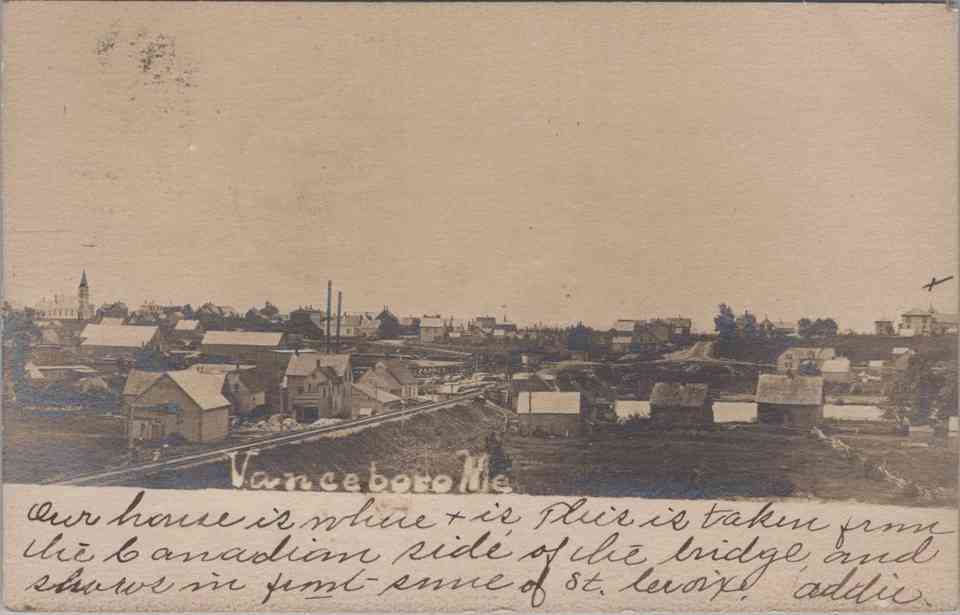 Vanceboro Me
Our house is where + is, This is taken from
the Canadian side, of the bridge, and
shows in front some of St. Croix. Addie.